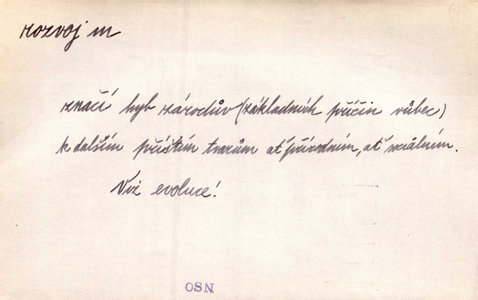 rozvoj m
značí hyb zárodův (základních příčin vůbec)
k dalším příštím tvarům ať přírodním, ať sociálním.
Viz evoluce!
OSN